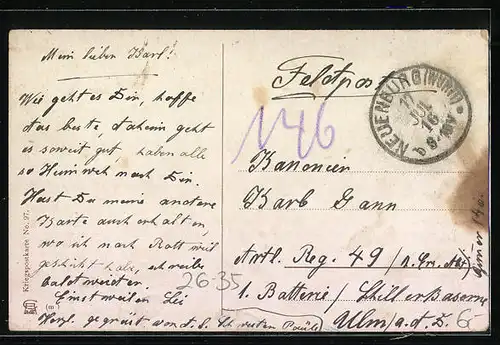 Mein lieber Karl!
Wie geht es Dir, hoffe
das beste, daheim geht
es soweit gut, haben alle
so Heimweh nach Dir.
Hast Du meine andere
Karte auch erhalten,
wo ich nach Rottweil
geschickt habe, schreibe
bald weiter.
Einstweilen sei
Herzl. gegrüßt von d. l.
Feldpost
146
NEUENBÜRG (WÜRTT)
17 JUL 16
Kanonier
Karl Gann
Artl. Reg. 49
1. Batterie / Schiller Kaserne
Ulm/a.d.D.
26-35
6-
Kriegspostkarte No. 97.